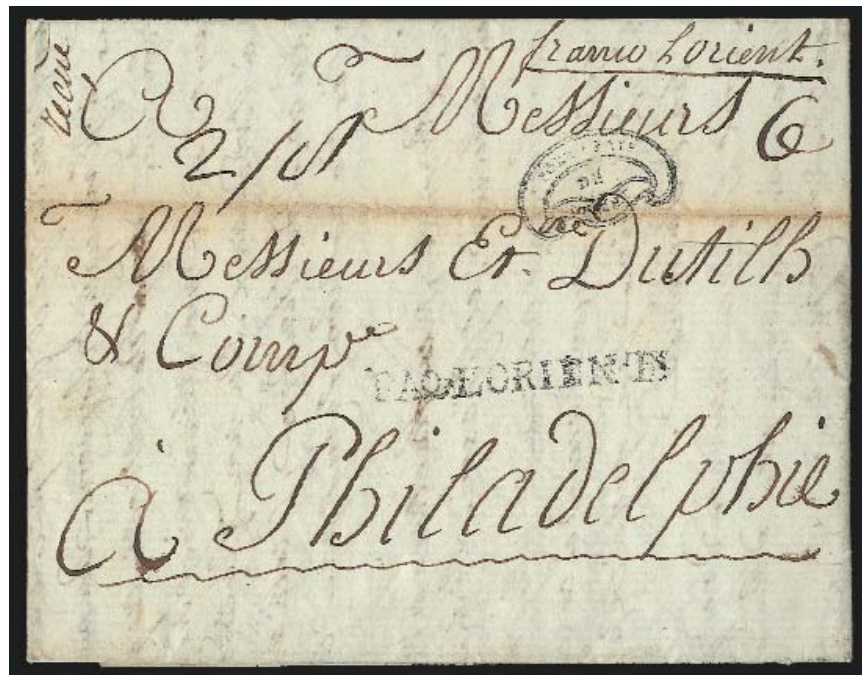 franco Lorient.
A Messieurs 6
Messieurs Et. Dutilh
& Compe
PAQ. LORIENT
à Philadelphie